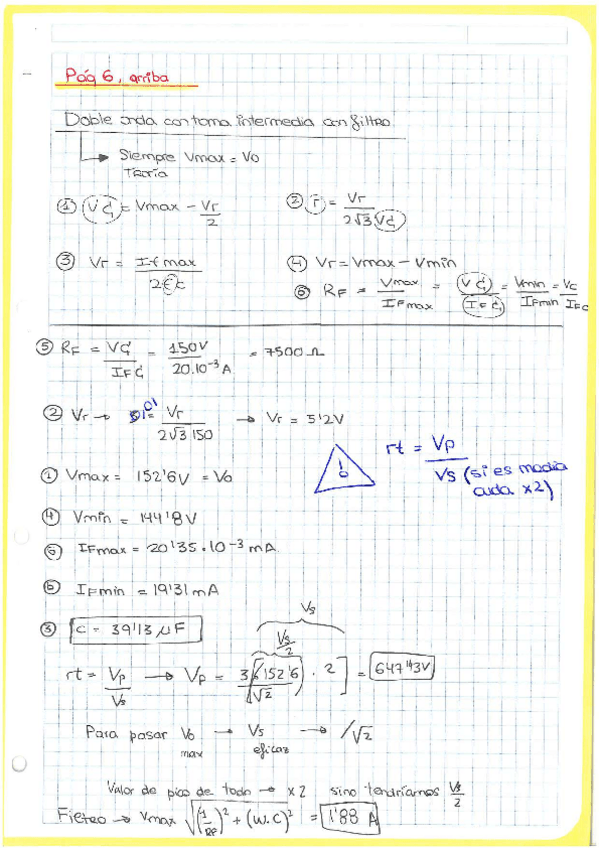 Pág 6, arriba
Doble onda con toma intermedia con filtro
Siempre Vmax = Vo
Teoría
① Vcf = Vmax - Vr/2
② r = Vr/2√3 Vcf
③ Vr = If max/2fc
④ Vr = Vmax - Vmin
⑥ RF = Vmax/IFmax = Vcf/IFcf = Vmin/IFmin = Vc/IFc
⑤ RF = Vcf/IFcf = 150V/20.10⁻³A = 7500 Ω
② Vr → 0'01 = Vr/2√3 150 → Vr = 5'2V
rt = Vp/Vs (si es media onda x2)
① Vmax = 152'6V = Vo
④ Vmin = 144'8V
⑥ IFmax = 20'35.10⁻³ mA
⑥ IFmin = 19'31 mA
③ C = 39'13 μF
Vs
Vs/2
rt = Vp/Vs → Vp = 3[(152'6/√2) · 2] = 647'43V
Para pasar Vo max → Vs eficaz → /√2
Valor de pico de todo → x2 sino tendríamos Vs/2
→ Vmax √(1/RF)² + (W.C)² = 1'88 A